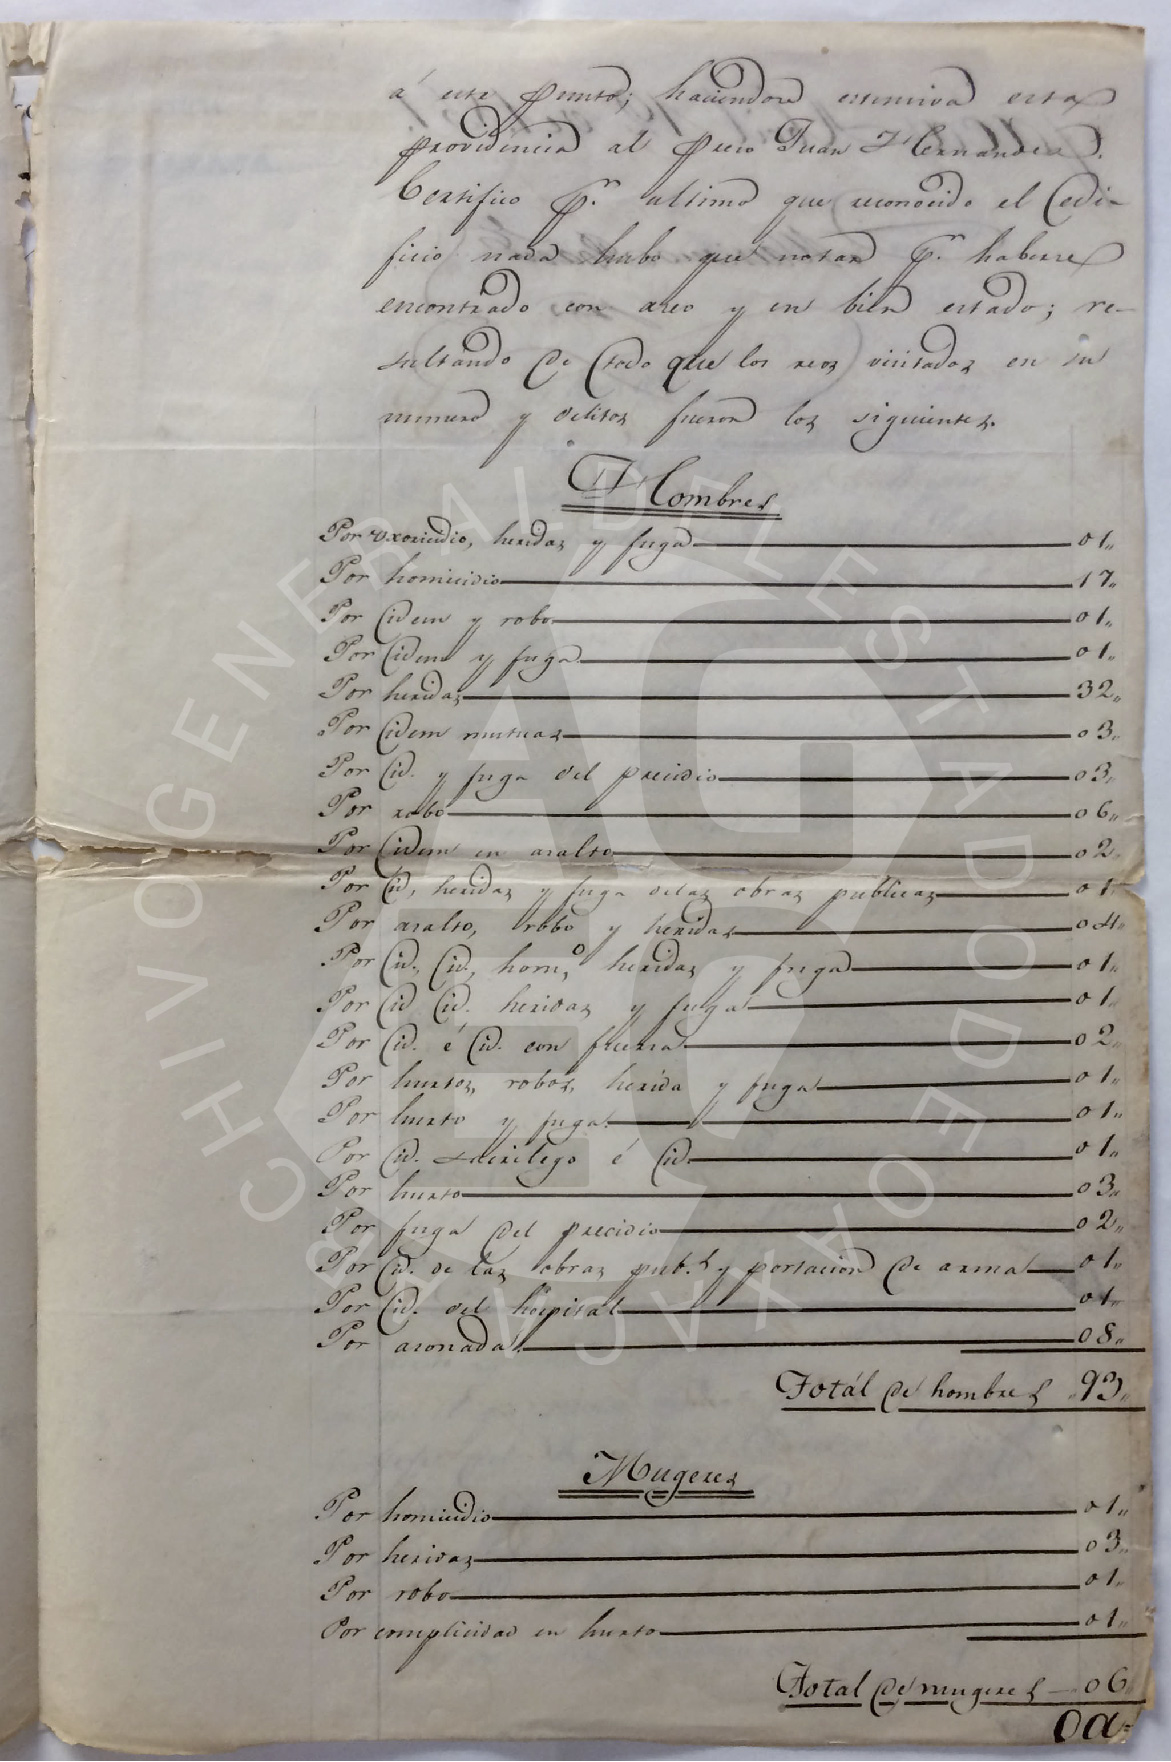 á este punto; haciendose estensiva esta
providencia al preso Juan Hernandez.
Certifico pr. ultimo que reconocido el edi-
ficio nada hubo que notar pr. haberse
encontrado con aseo y en bien estado; re-
sultando de todo que los reos visitados en su
numero y delitos fueron los siguientes.
Hombres
Por uxoricidio, heridas y fuga 01,,
Por homicidio 17,,
Por idem y robo 01,,
Por idem y fuga 01,,
Por heridas 32,,
Por idem mutuas 03,,
Por id. y fuga del precidio 03,,
Por robo 06,,
Por idem en asalto 02,,
Por id, heridas y fuga delas obras publicas 01,,
Por asalto, robo y heridas 04,,
Por id., id., hom,o heridas y fuga 01,,
Por id id. heridas y fuga 01,,
Por id. é id. con fuerza 02,,
Por hurtos, robos, herida y fuga 01,,
Por hurto y fuga 01,,
Por id. sacrilego é id. 01,,
Por hurto 03,,
Por fuga del precidio 02,,
Por id. de las obras pub.s y portacion de arma 01,,
Por id. del hospital 01,,
Por asonada 08,,
Totál de hombres ,,93,,
Mugeres
Por homicidio 01,,
Por heridas 03,,
Por robo 01,,
Por complicidad en hurto 01,,
Total de mugeres 06,,
ARCHIVO GENERAL DEL ESTADO DE OAXACA